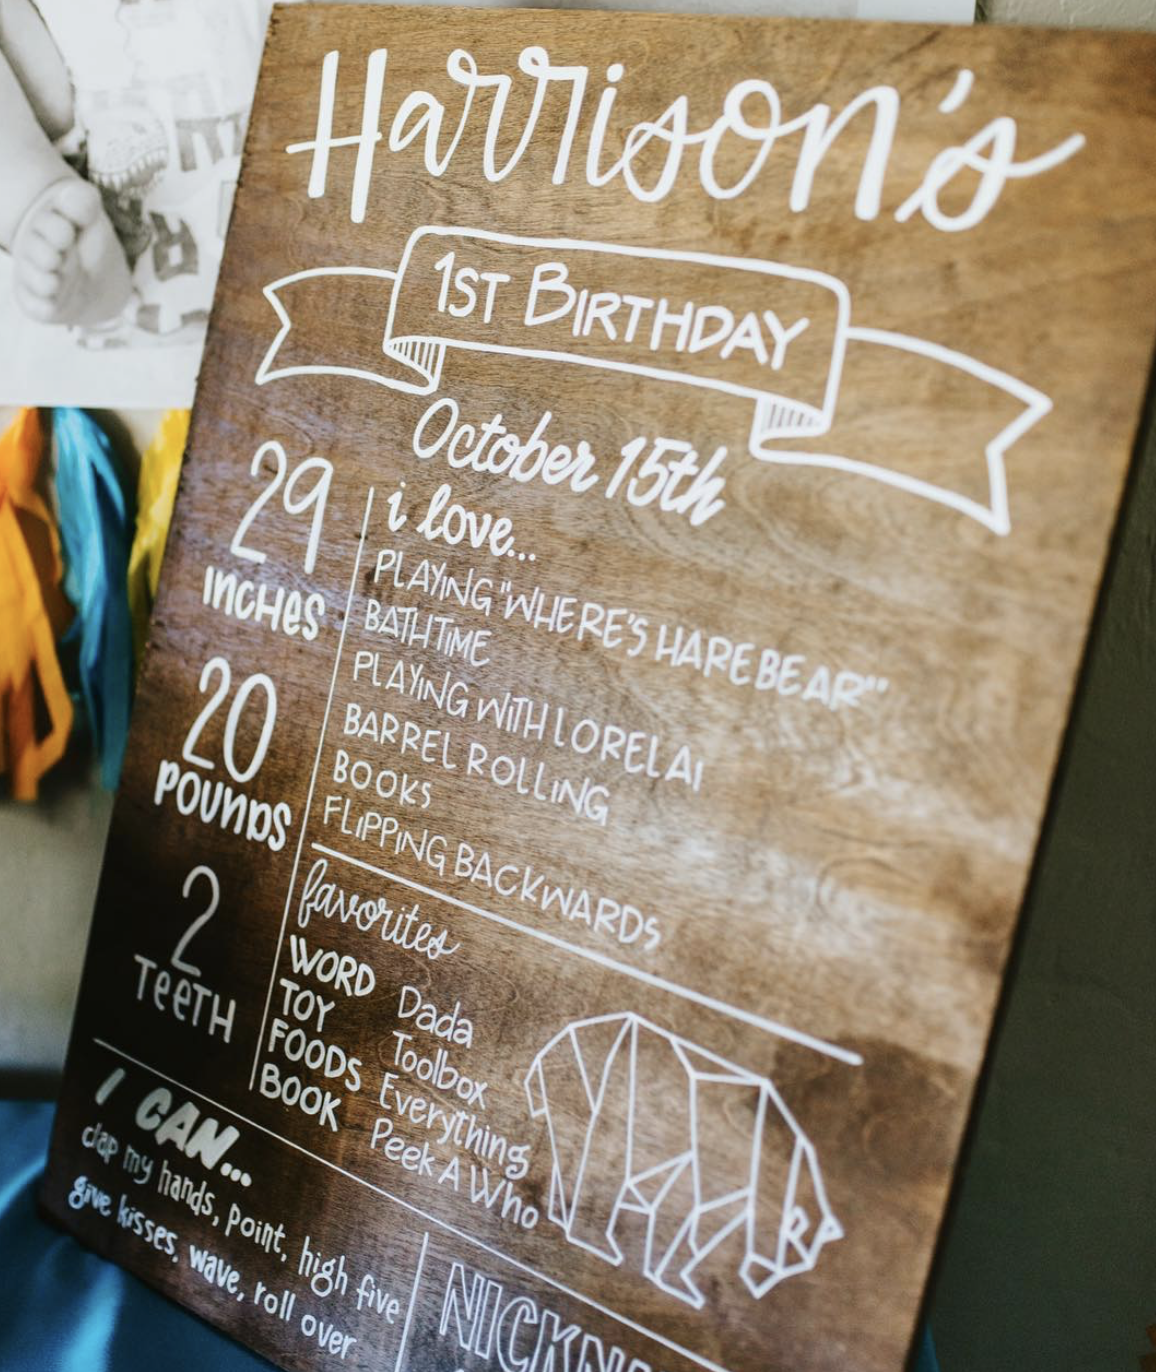 Harrison's
1ST BIRTHDAY
October 15th
29
INCHES
20
POUNDS
2
TEETH
i love...
PLAYING "WHERE'S HAREBEAR"
BATHTIME
PLAYING WITH LORELAI
BARREL ROLLING
BOOKS
FLIPPING BACKWARDS
favorites
WORD Dada
TOY Toolbox
FOODS Everything
BOOK Peek A Who
I CAN...
clap my hands, point, high five
give kisses, wave, roll over